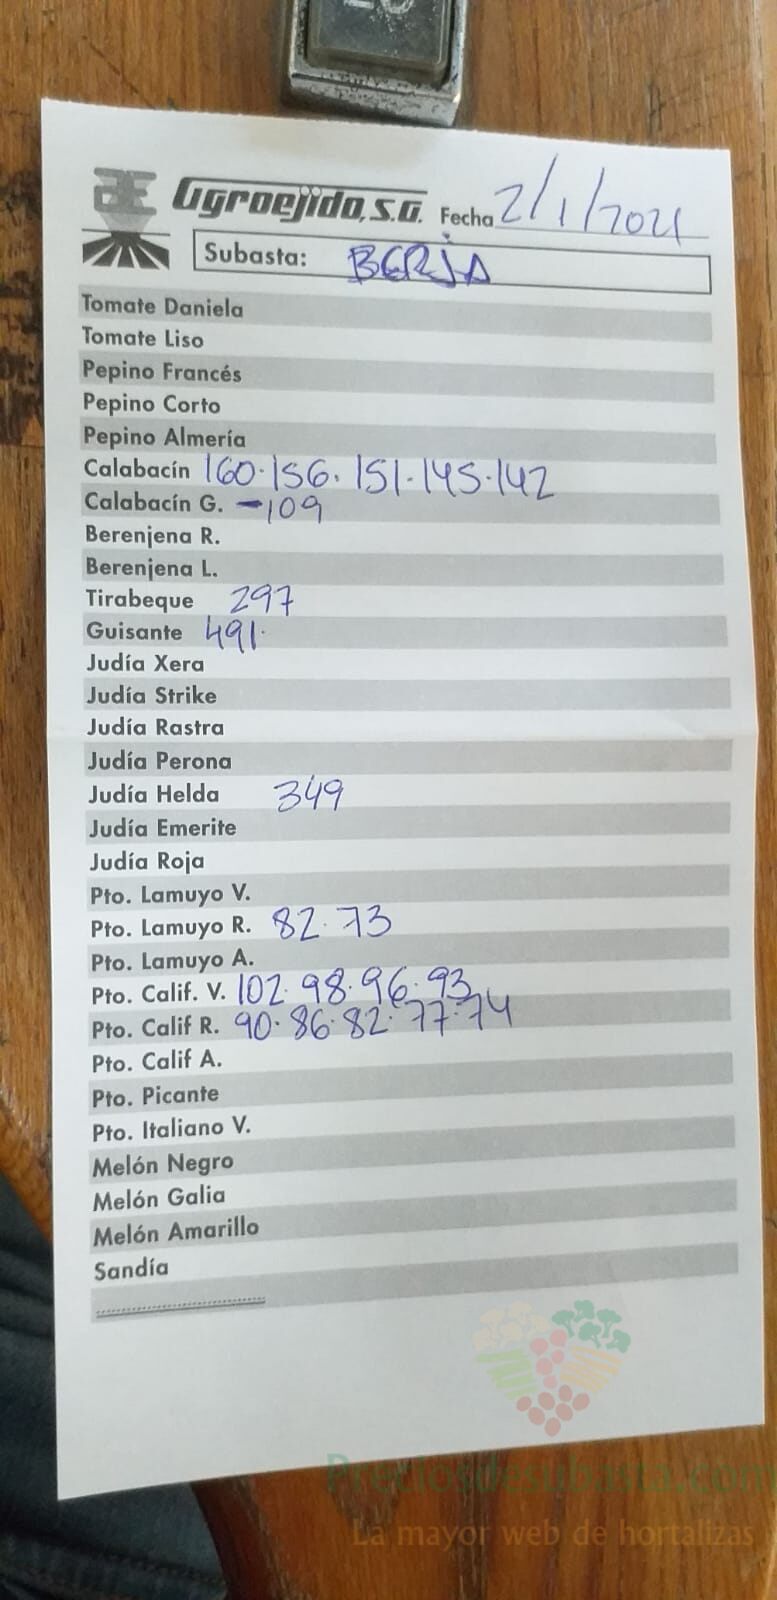 Agroejido, S.A. Fecha 2/1/2021
Subasta: BERJA
Tomate Daniela
Tomate Liso
Pepino Francés
Pepino Corto
Pepino Almería
Calabacín 160·156·151·145·142
Calabacín G. -109
Berenjena R.
Berenjena L.
Tirabeque 297
Guisante 491·
Judía Xera
Judía Strike
Judía Rastra
Judía Perona
Judía Helda 349
Judía Emerite
Judía Roja
Pto. Lamuyo V.
Pto. Lamuyo R. 82·73
Pto. Lamuyo A.
Pto. Calif. V. 102·98·96·93
Pto. Calif R. 90·86·82·77·74
Pto. Calif A.
Pto. Picante
Pto. Italiano V.
Melón Negro
Melón Galia
Melón Amarillo
Sandía
Preciosdesubasta.com
La mayor web de hortalizas